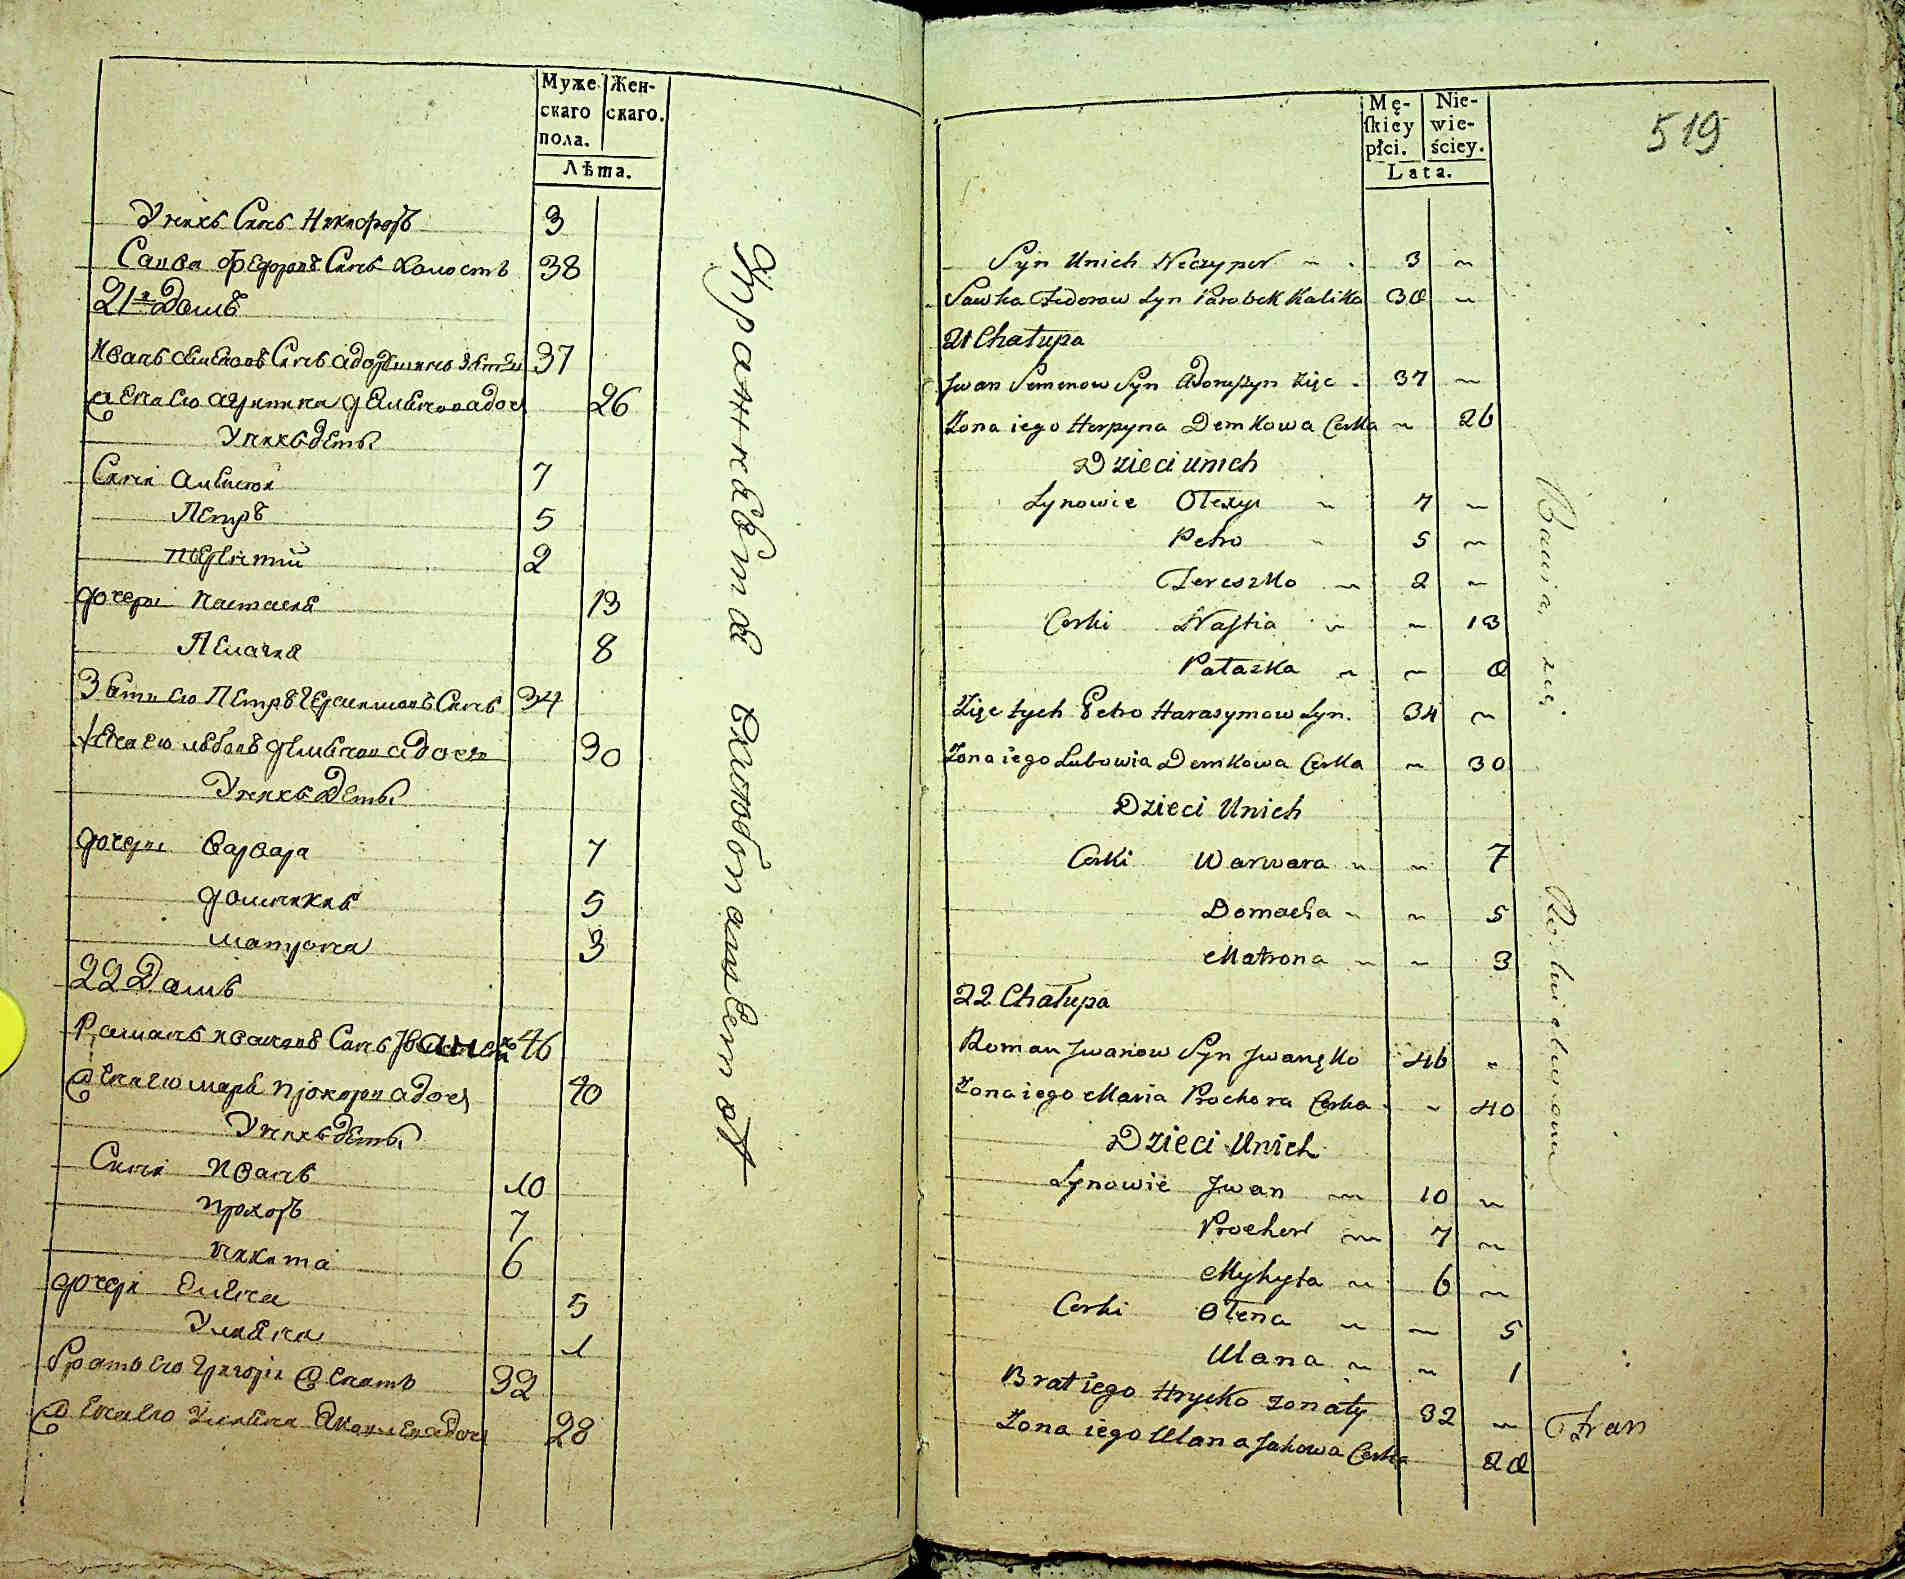 Муже
скаго
пола.
Жен-
скаго.
Лѣта.
У нихъ Синъ Никифоръ 3
Савва Федоровъ Синъ холостъ 38
21й Домъ
Иванъ Семеновъ Синъ 37
Жена его 26
У нихъ дети
Сини Алексей 7
Петръ 5
Терентий 2
дочери Настасия 13
Пелагия 8
Зять его Петръ Герасимовъ Синъ 34
Жена его 30
У нихъ дети
дочери Варвара 7
Домникия 5
Матрона 3
22 Домъ
Романъ Ивановъ Синъ 46
Жена его Мария Прохорова дочь 40
У нихъ дети
Сини Иванъ 10
Прохоръ 7
Никита 6
дочери Елена 5
Улияна 1
Братъ его Григорий Женатъ 32
Жена его Улияна 28
Mę-
skiey
płci.
Nie-
wie-
ściey.
Lata.
519
Syn Unich Neczypor 3
Sawka Fedorow Syn Parobek Kalika 38
21 Chałupa
Jwan Semenow Syn Zięc 37
Zona iego Horpyna Demkowa Corka 26
Dzieci unich
Synowie Ołexy 7
Petro 5
Tereszko 2
Corki Nastia 13
Pałazka 8
Zięc tych Petro Harasymow Syn. 34
Zona iego Lubowia Demkowa Corka 30
Dzieci Unich
Corki Warwara 7
Domacha 5
Matrona 3
22 Chałupa
Roman Jwanow Syn Jwanęko 46
Zona iego Maria Prochora Corka 40
Dzieci Unich
Synowie Jwan 10
Prochor 7
Mykyta 6
Corki Ołena 5
Ulana 1
Brat iego Hrycko zonaty 32
Zona iego Ulana Jakowa Corka 28